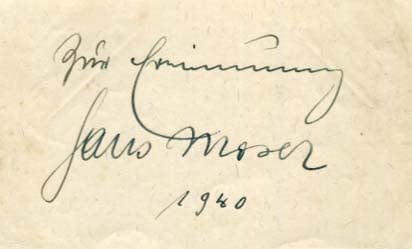 Zur Erinnerung
Hans Moser
1940